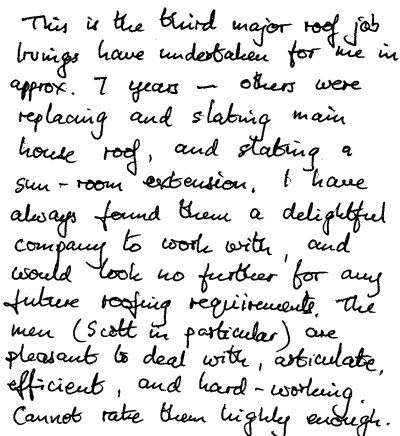 This is the third major roof job
Irvings have undertaken for me in
approx. 7 years – others were
replacing and slating main
house roof, and slating a
sun-room extension. I have
always found them a delightful
company to work with, and
would look no further for any
future roofing requirements. The
men (Scott in particular) are
pleasant to deal with, articulate,
efficient, and hard-working.
Cannot rate them highly enough.